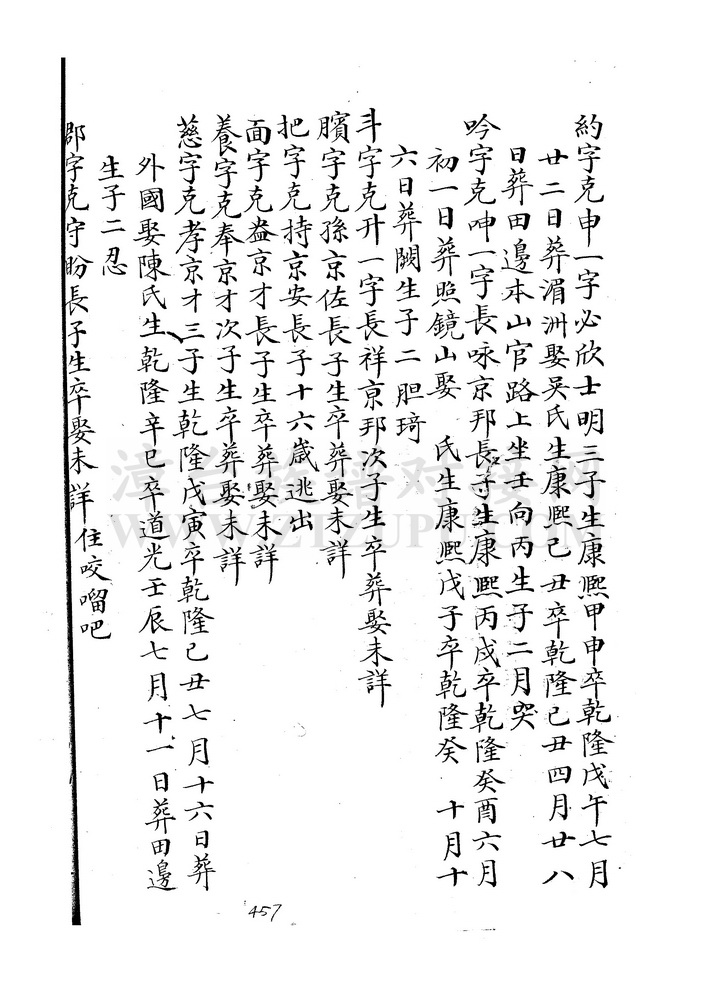 約字克申一字必欣士明三子生康熙甲申卒乾隆戊午七月
廿二日葬湄洲娶吳氏生康熙己丑卒乾隆己丑四月廿八
日葬田邊本山官路上坐壬向丙生子二月哭
吟字克呻一字長咏京邦長子生康熙丙戌卒乾隆癸酉六月
初一日葬照鏡山娶 氏生康熙戊子卒乾隆癸 十月十
六日葬闕生子二胆琦
斗字克升一字長祥京邦次子生卒葬娶未詳
臏字克孫京佐長子生卒葬娶未詳
把字克持京安長子十六歲逃出
面字克盎京才長子生卒葬娶未詳
養字克奉京才次子生卒葬娶未詳
慈字克孝京才三子生乾隆戊寅卒乾隆己丑七月十六日葬
外國娶陳氏生乾隆辛巳卒道光壬辰七月十一日葬田邊
生子二忍
郡字克守盼長子生卒娶未詳住咬𠺕吧
漳台族谱对接网
WWW.ZTZUPU.COM
457